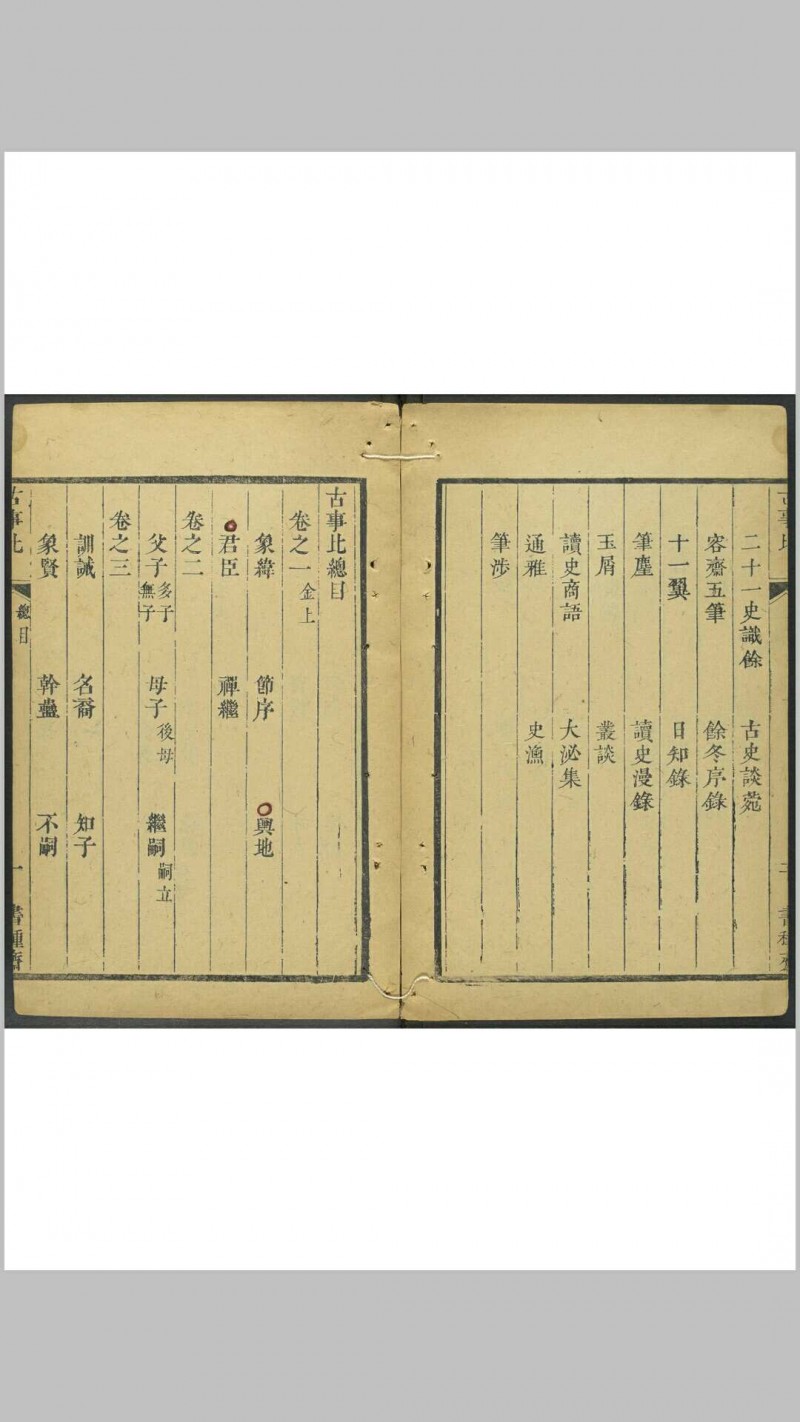 古事比
二十一史識餘 古史談菀
容齋五筆 餘冬序錄
十一翼 日知錄
筆麈 讀史漫錄
玉屑 叢談
讀史商語 大泌集
通雅 史漁
筆涉
古事比總目
卷之一 金上
象緯 節序 輿地
君臣 禪繼
卷之二
父子 多子 無子 母子 後母 繼嗣 嗣立
卷之三
訓誡 名裔 知子
象賢 幹蠱 不嗣
古事比 總目 一 書種齋